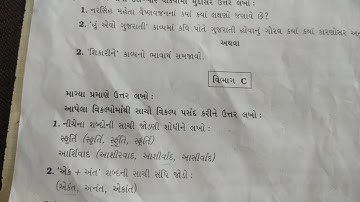 1. નરસિંહ મહેતા વૈષ્ણવજનનાં કયાં કયાં લક્ષણો જણાવે છે?
2. 'હું એવો ગુજરાતી' કાવ્યમાં કવિ પોતે ગુજરાતી હોવાનું ગૌરવ કયાં કયાં કારણોસર
અથવા
2. 'શિકારીને' કાવ્યનો ભાવાર્થ સમજાવો.
વિભાગ C
માગ્યા પ્રમાણે ઉત્તર લખો :
આપેલા વિકલ્પોમાંથી સાચો વિકલ્પ પસંદ કરીને ઉત્તર લખો :
1. નીચેના શબ્દોની સાચી જોડણી શોધીને લખો :
સ્ફુર્તિ
આર્શિવાદ (આશીરવાદ, આશીર્વાદ, આર્સીવાદ)
2. 'એક + અંત' શબ્દની સાચી સંધિ જોડો :
(એકંત, અનંત, એકાંત)